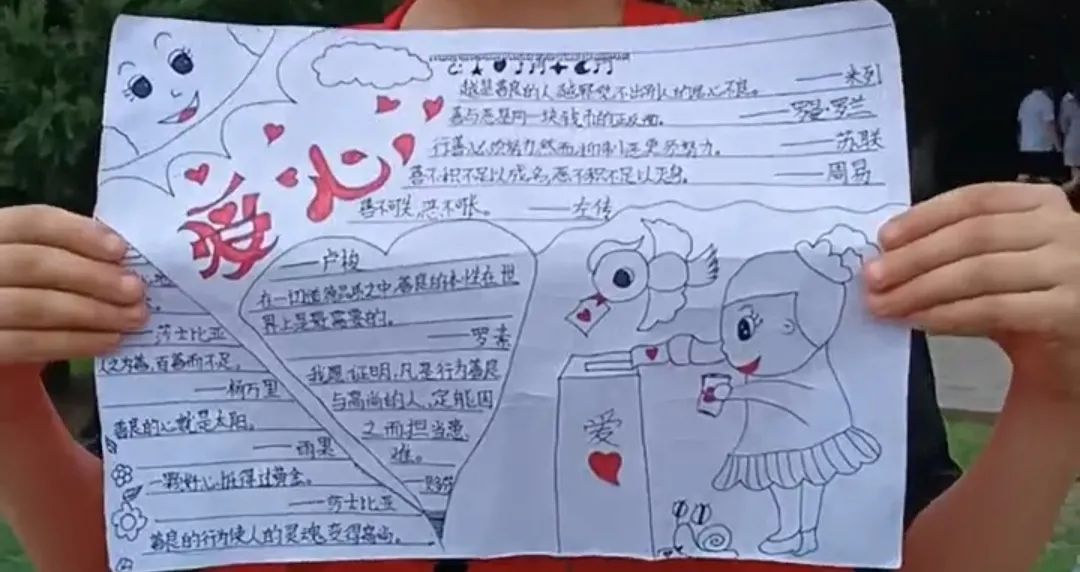 爱心
越是善良的人,越察觉不出别人的居心不良。
——米列
善与恶是同一块钱币的正反面。
——罗曼·罗兰
行善必须努力,然而,抑制恶更须努力。
——苏联
善不积不足以成名,恶不积不足以灭身。
——周易
善不可失,恶不可长。 ——左传
——卢梭
在一切道德品质之中,善良的本性在世
界上是最需要的。
——罗素
我愿证明,凡是行为善良
与高尚的人,定能因
之而担当患
难。
——莎士比亚
人之为善,百善而不足。
——杨万里
善良的心就是太阳。
——雨果
一颗好心抵得过黄金。
——莎士比亚
善良的行为使人的灵魂变得高尚。
爱